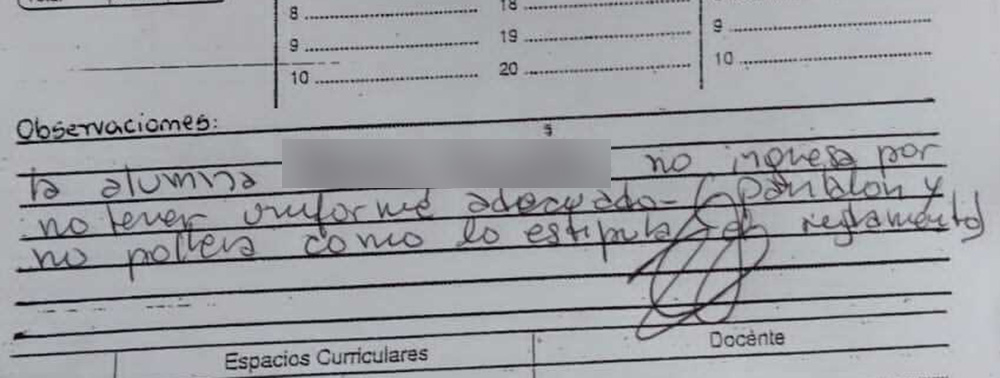 8 ........ 18 ........
9 ........ 19 ........ 9 ........
10 ........ 20 ........ 10 ........
Observaciones:
la alumna no ingresa por
no tener uniforme adecuado- (pantalon y
no pollera como lo estipula el reglamento)
Espacios Curriculares Docente